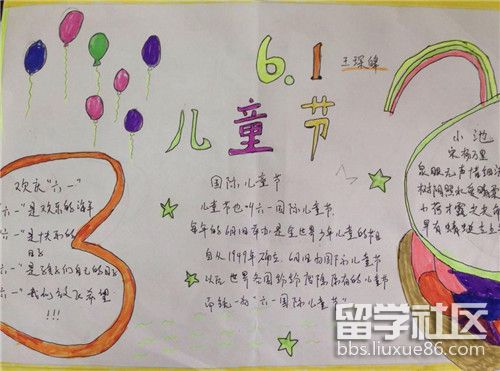 6.1
王琛峰
儿童节
欢庆“六一”
“六一”是欢乐的海洋
“六一”是快乐的
节日
“六一”是孩子们自己的日子
“六一”我们放飞希望
!!!
国际儿童节
儿童节也叫六一国际儿童节,
每年的6月1日举办是全世界少年儿童的节日
自从1949年确立,6月1日为国际儿童节
以后世界各国纷纷废除原有的儿童节
而统一为“六一国际儿童节”
小池
宋 杨万里
泉眼无声惜细流
树阴照水爱晴柔
小荷才露尖尖角
早有蜻蜓立上头
留学社区
bbs.liuxue86.com